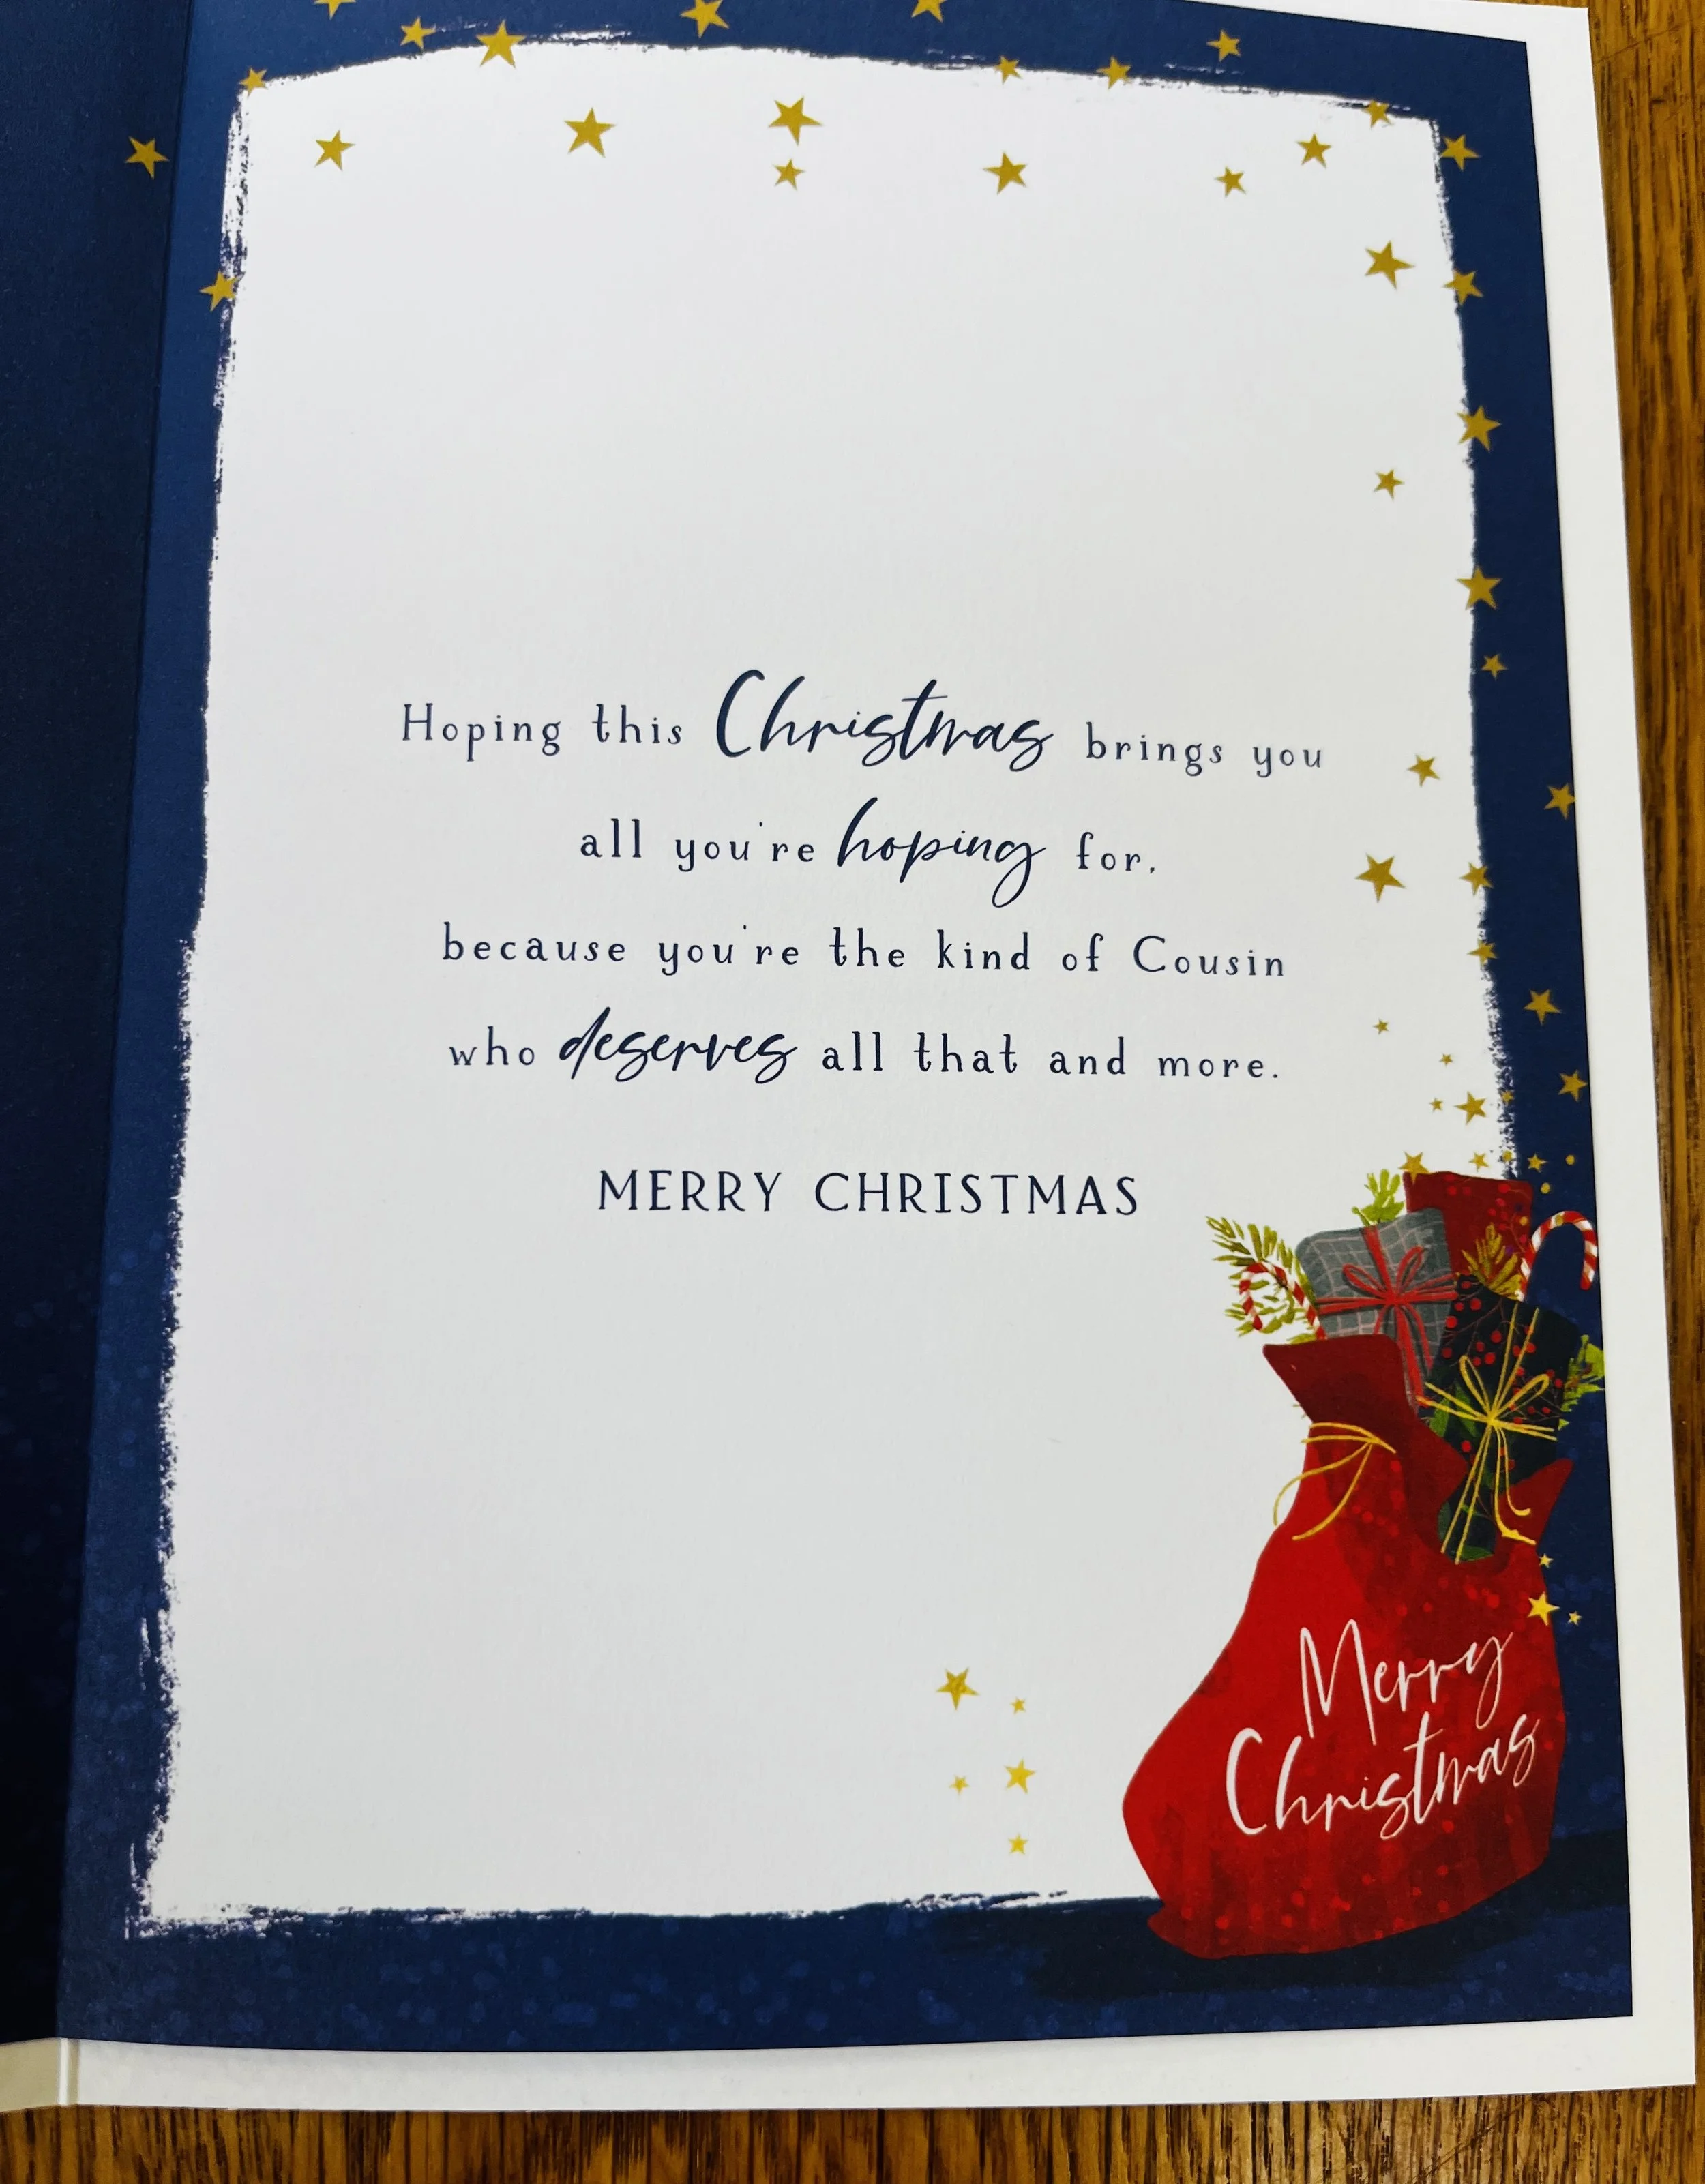 Hoping this Christmas brings you
all you're hoping for,
because you're the kind of Cousin
who deserves all that and more.
MERRY CHRISTMAS
Merry
Christmas